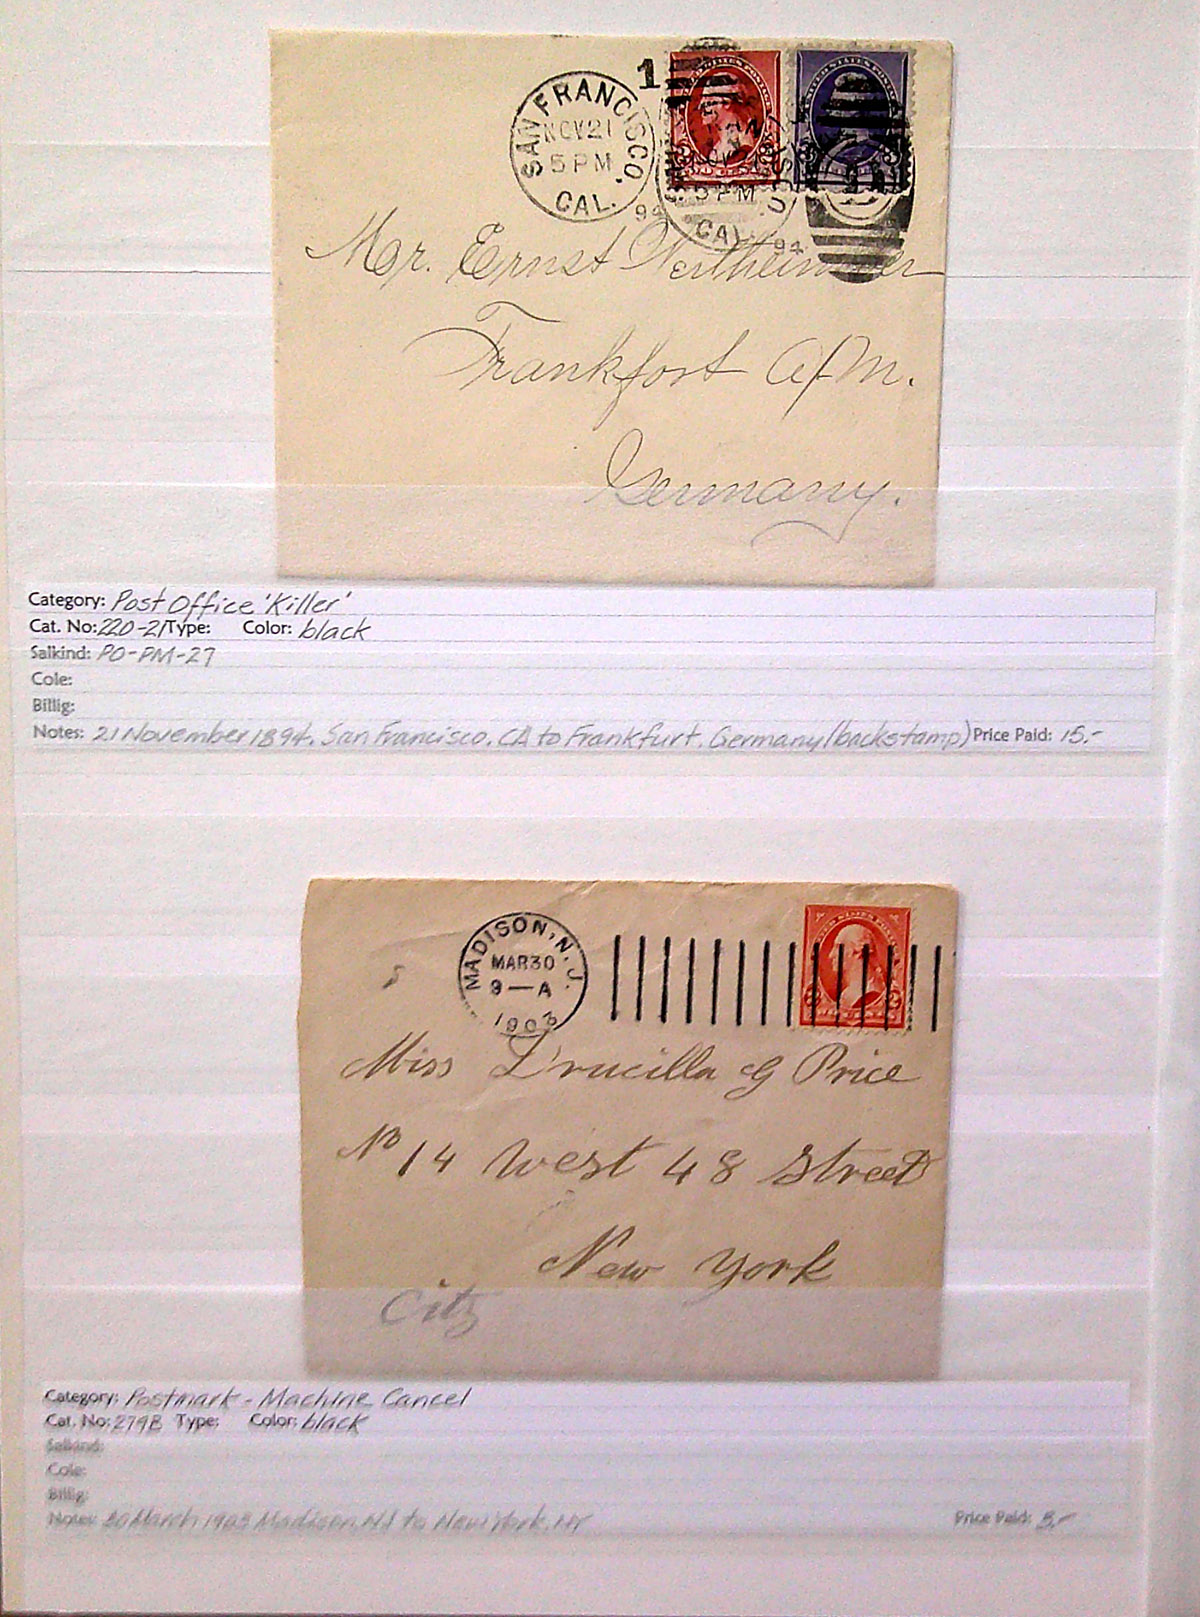 1
SAN FRANCISCO,
NOV 21
5 PM
CAL.
94
NOV
5 PM
CAL.
94
UNITED STATES POSTAGE
Mr. Ernst Wertheimer
Frankfort a/M.
Germany.
Category: Post Office 'Killer'
Cat. No: 220-21 Type: Color: black
Salkind: PO-PM-27
Cole:
Billig:
Notes: 21 November 1894. San Francisco, CA to Frankfurt, Germany (backstamp) Price Paid: 15.-
MADISON, N.J.
MAR 30
9 — A
1903
Miss Drucilla G Price
No 14 West 48 Street
New York
City
Category: Postmark - Machine Cancel
Cat. No: 279B Type: Color: black
Salkind:
Cole:
Billig:
Notes: 30 March 1903 Madison, NJ to New York, NY Price Paid: 5.-